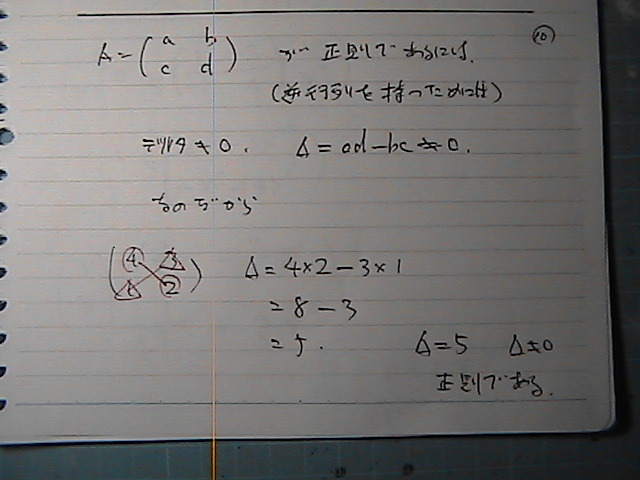 ⑩
A = ( a b
c d ) が 正則であるには、
(逆行列を持つためには)
デルタ ≠ 0. Δ = ad − bc ≠ 0.
( 4 3
1 2 ) Δ = 4×2 − 3×1
= 8 − 3
= 5.
Δ = 5 Δ ≠ 0
正則である.